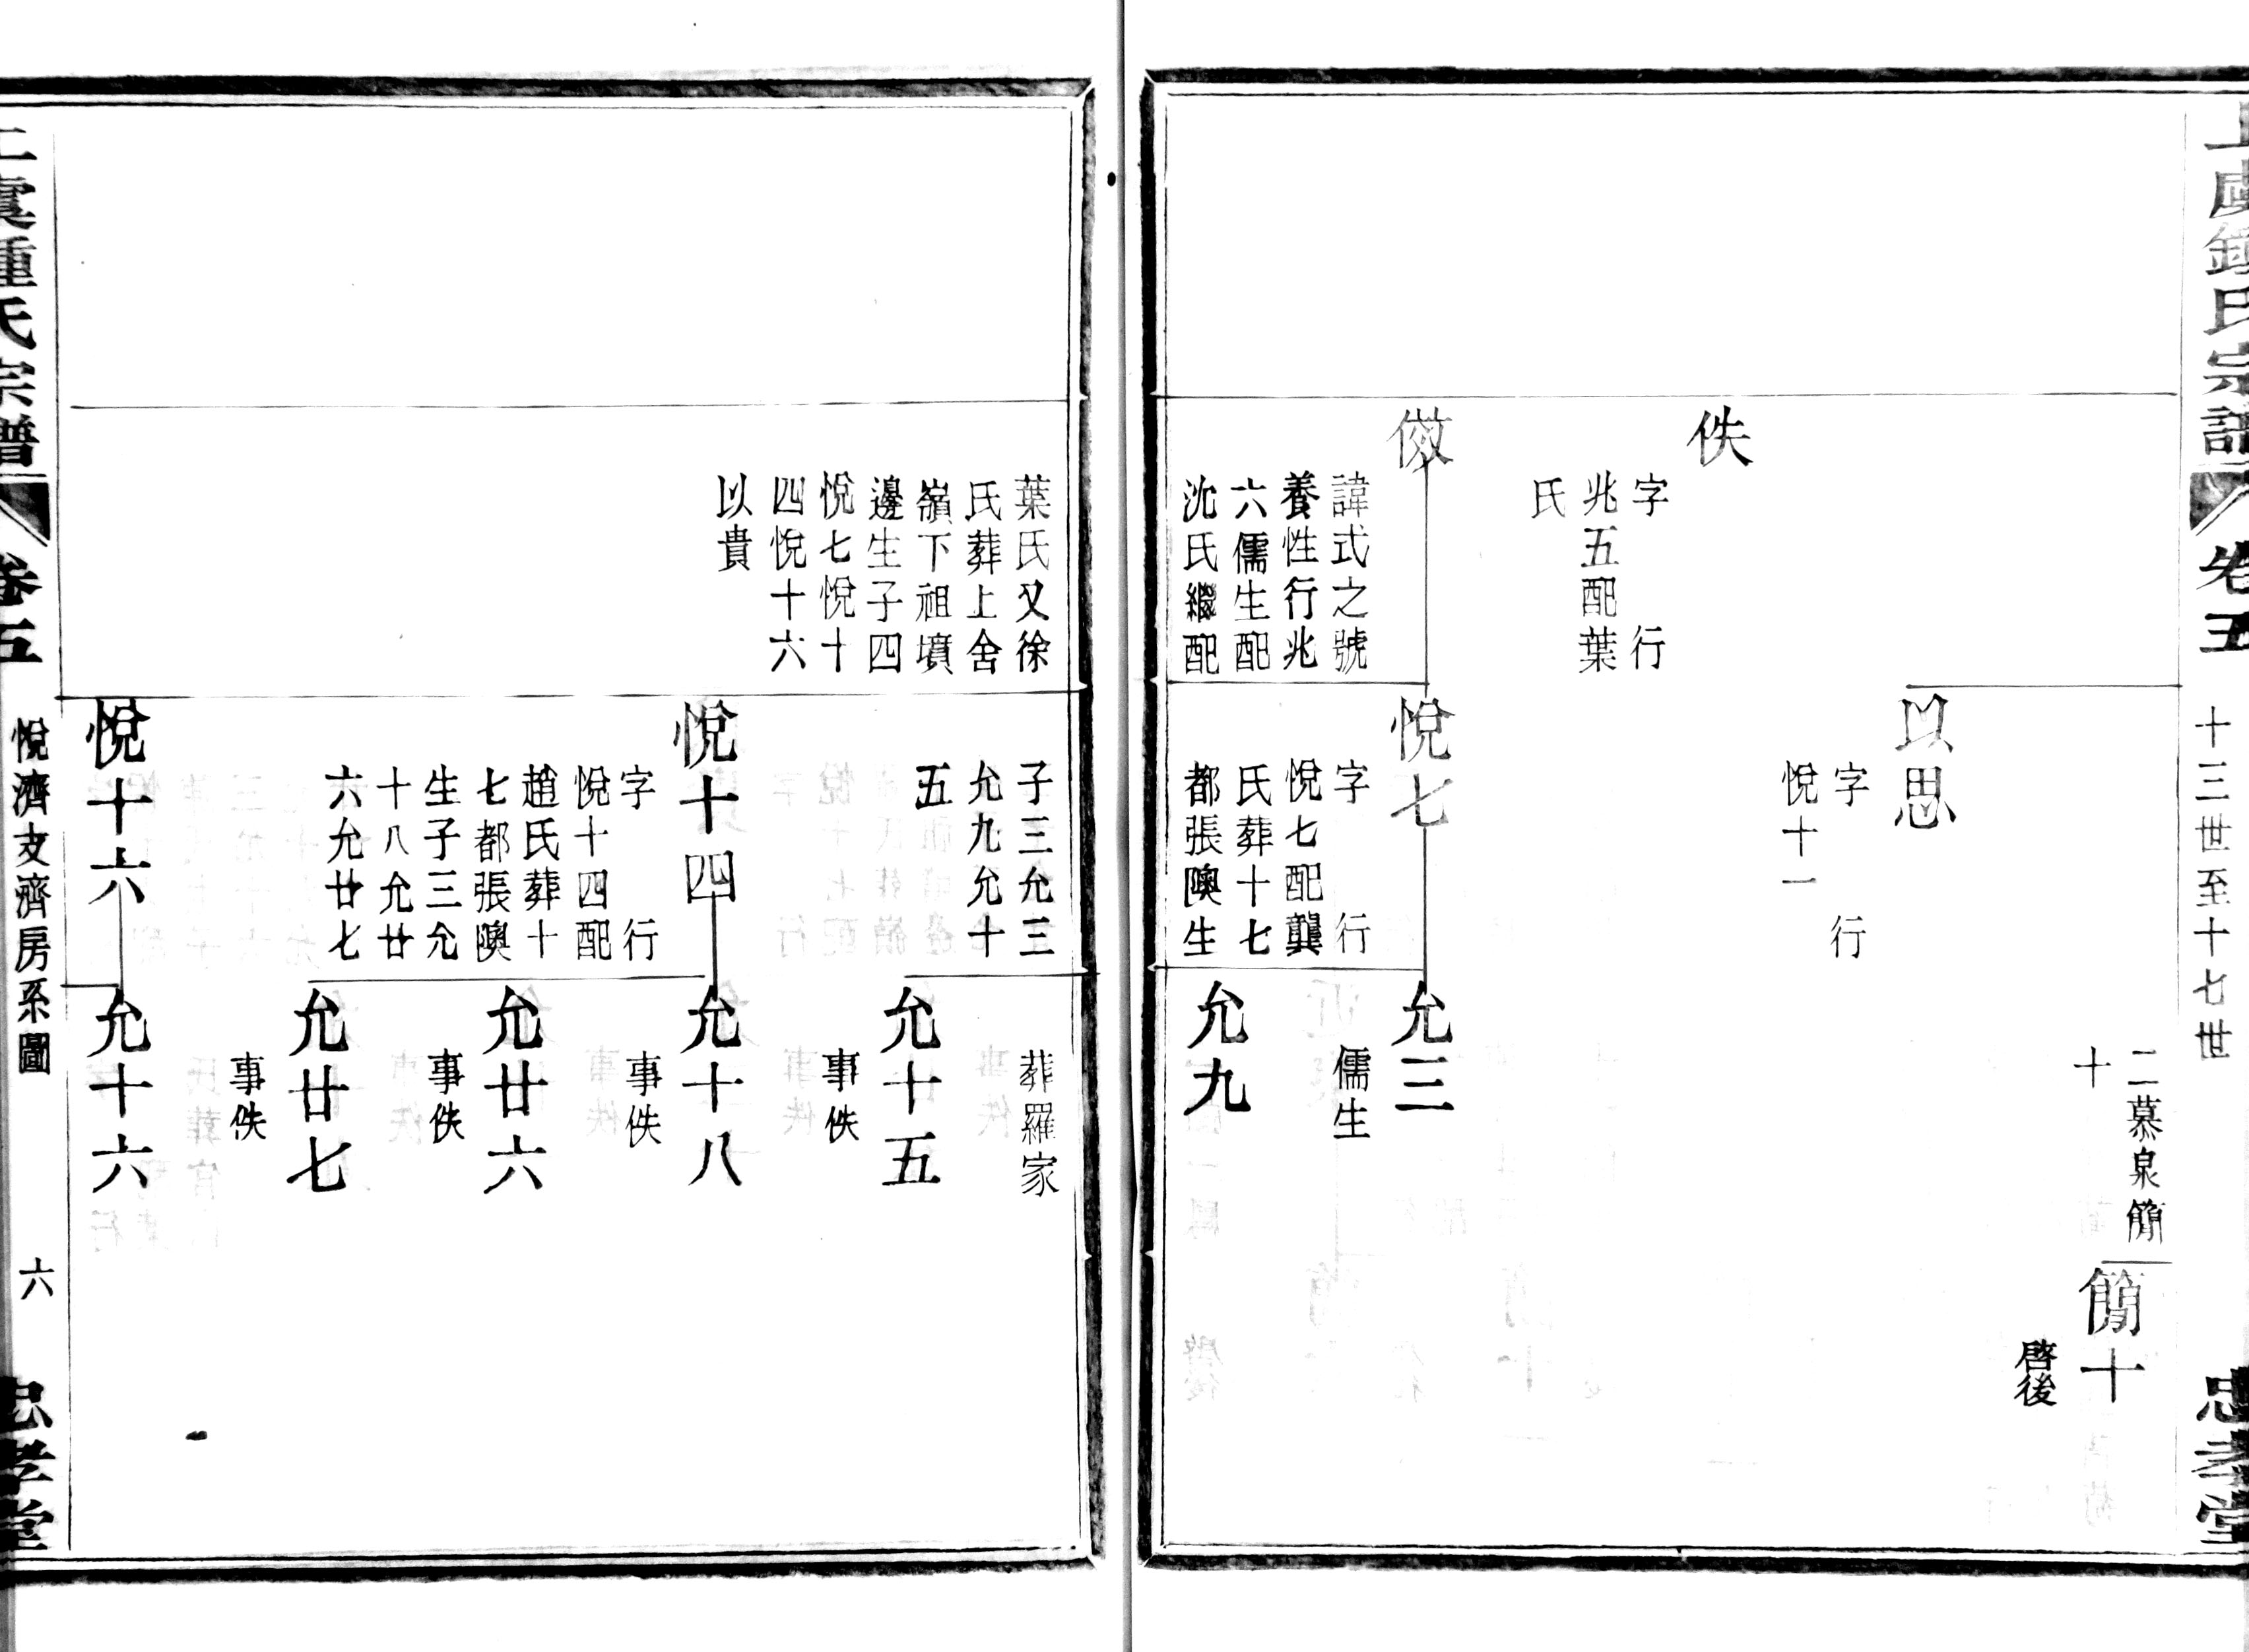 上虞鍾氏宗譜
卷五
十三世至十七世
忠孝堂
二慕泉簡
十
簡十
啓後
以思
字　行
悅十一
佚
字　行
兆五配葉
氏
倣
諱式之號
養性行兆
六儒生配
沈氏繼配
悅七
字　行
悅七配龔
氏葬十七
都張隩生
允三
儒生
允九
葉氏又徐
氏葬上舍
嶺下祖墳
邊生子四
悅七悅十
四悅十六
以貴
子三允三
允九允十
五
葬羅家
允十五
事佚
悅十四
字　行
悅十四配
趙氏葬十
七都張隩
生子三允
十八允廿
六允廿七
允十八
事佚
允廿六
事佚
允廿七
事佚
悅十六
允十六
上虞鍾氏宗譜
卷五
悅濟支濟房系圖
六
忠孝堂